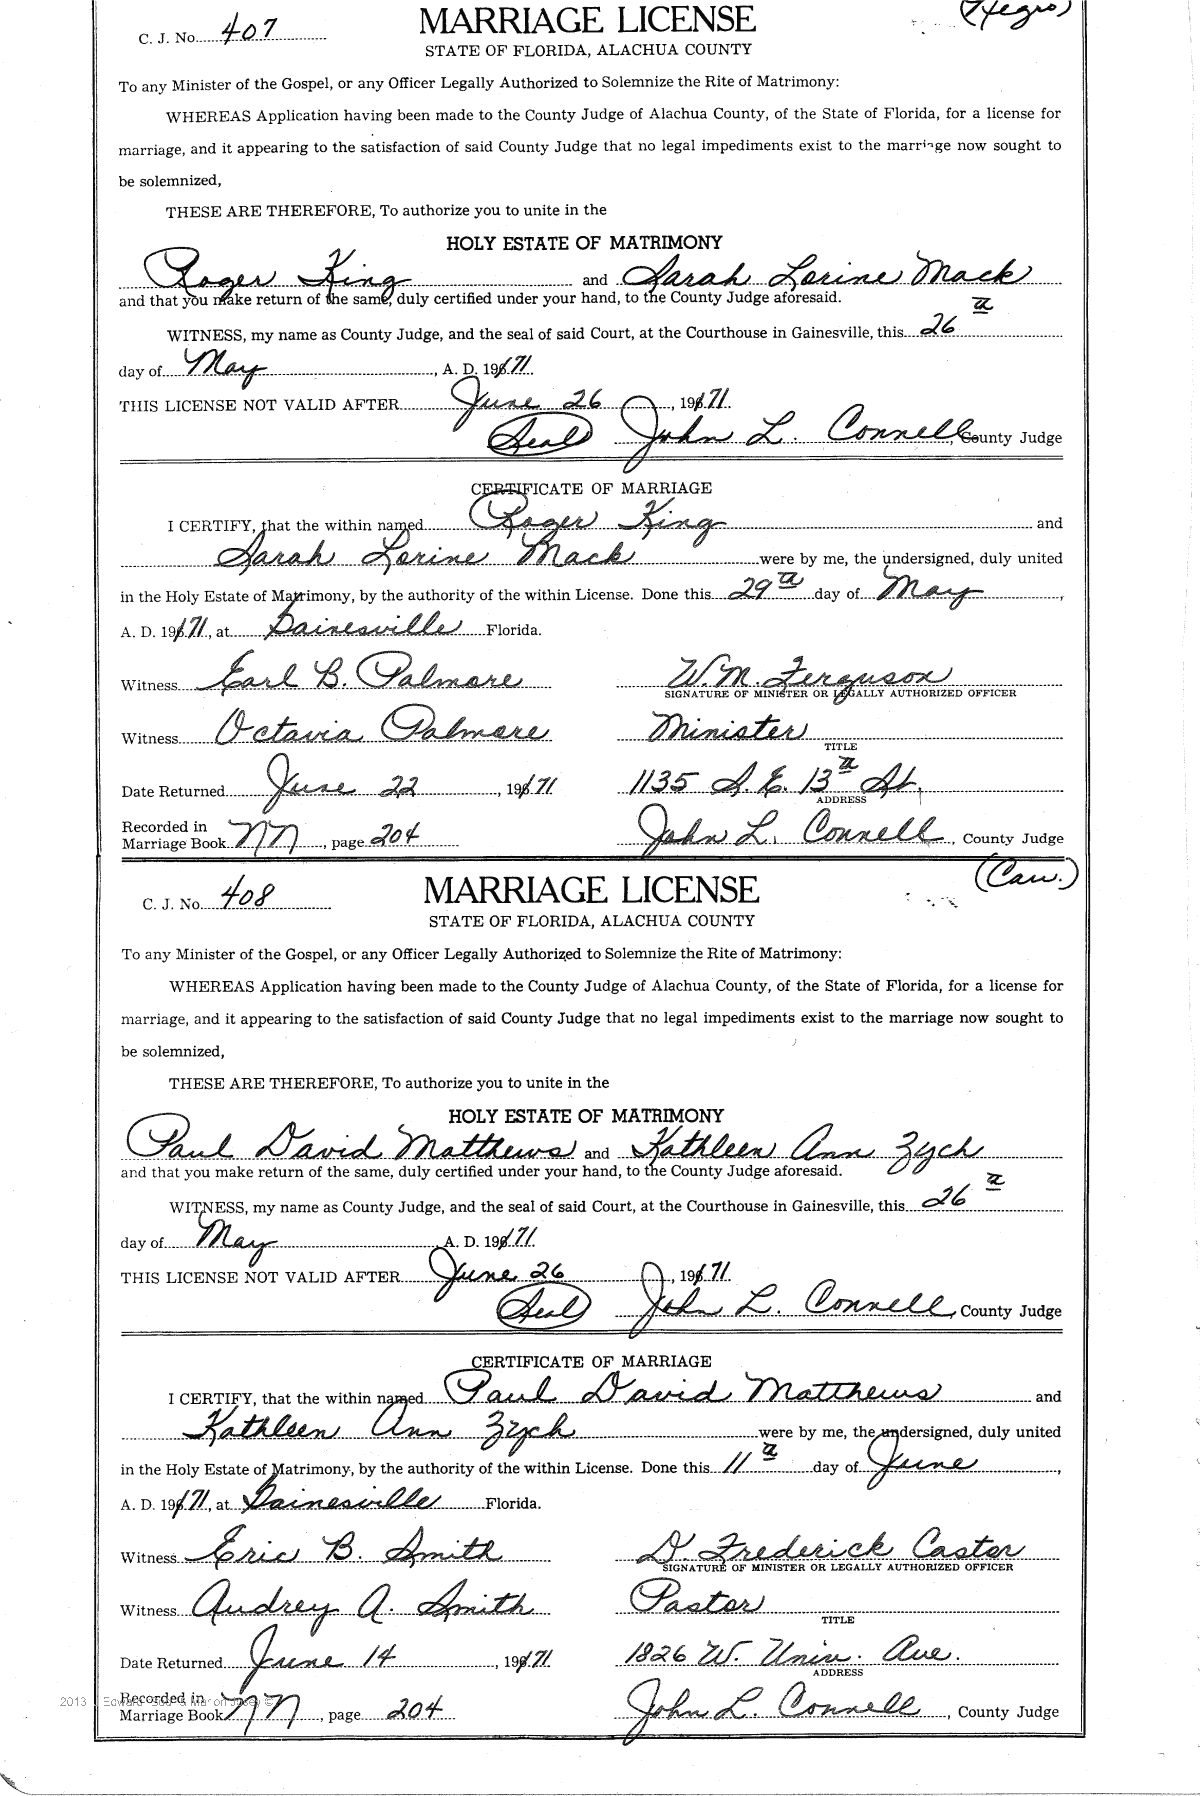 (Negro)
C. J. No. 407 MARRIAGE LICENSE
STATE OF FLORIDA, ALACHUA COUNTY
To any Minister of the Gospel, or any Officer Legally Authorized to Solemnize the Rite of Matrimony:
WHEREAS Application having been made to the County Judge of Alachua County, of the State of Florida, for a license for
marriage, and it appearing to the satisfaction of said County Judge that no legal impediments exist to the marriage now sought to
be solemnized,
THESE ARE THEREFORE, To authorize you to unite in the
HOLY ESTATE OF MATRIMONY
Roger King and Sarah Lorine Mack
and that you make return of the same, duly certified under your hand, to the County Judge aforesaid.
WITNESS, my name as County Judge, and the seal of said Court, at the Courthouse in Gainesville, this 26th
day of May, A. D. 1971.
THIS LICENSE NOT VALID AFTER June 26, 1971.
(Seal) John L. Connell County Judge
CERTIFICATE OF MARRIAGE
I CERTIFY, that the within named Roger King and
Sarah Lorine Mack were by me, the undersigned, duly united
in the Holy Estate of Matrimony, by the authority of the within License. Done this 29th day of May,
A. D. 1971, at Gainesville Florida.
Witness Earl B. Palmore W. M. Ferguson
SIGNATURE OF MINISTER OR LEGALLY AUTHORIZED OFFICER
Witness Octavia Palmore Minister
TITLE
Date Returned June 22, 1971 1135 S. E. 13th St.
ADDRESS
Recorded in
Marriage Book NN, page 204 John L. Connell, County Judge
(Cau.)
C. J. No. 408 MARRIAGE LICENSE
STATE OF FLORIDA, ALACHUA COUNTY
To any Minister of the Gospel, or any Officer Legally Authorized to Solemnize the Rite of Matrimony:
WHEREAS Application having been made to the County Judge of Alachua County, of the State of Florida, for a license for
marriage, and it appearing to the satisfaction of said County Judge that no legal impediments exist to the marriage now sought to
be solemnized,
THESE ARE THEREFORE, To authorize you to unite in the
HOLY ESTATE OF MATRIMONY
Paul David Matthews and Kathleen Ann Zych
and that you make return of the same, duly certified under your hand, to the County Judge aforesaid.
WITNESS, my name as County Judge, and the seal of said Court, at the Courthouse in Gainesville, this 26th
day of May, A. D. 1971.
THIS LICENSE NOT VALID AFTER June 26, 1971.
(Seal) John L. Connell, County Judge
CERTIFICATE OF MARRIAGE
I CERTIFY, that the within named Paul David Matthews and
Kathleen Ann Zych were by me, the undersigned, duly united
in the Holy Estate of Matrimony, by the authority of the within License. Done this 11th day of June,
A. D. 1971, at Gainesville Florida.
Witness Eric B. Smith D. Frederick Castor
SIGNATURE OF MINISTER OR LEGALLY AUTHORIZED OFFICER
Witness Audrey A. Smith Pastor
TITLE
Date Returned June 14, 1971 1826 W. Univ. Ave.
ADDRESS
2013 Edward
Recorded in
Marriage Book NN, page 204 John L. Connell, County Judge